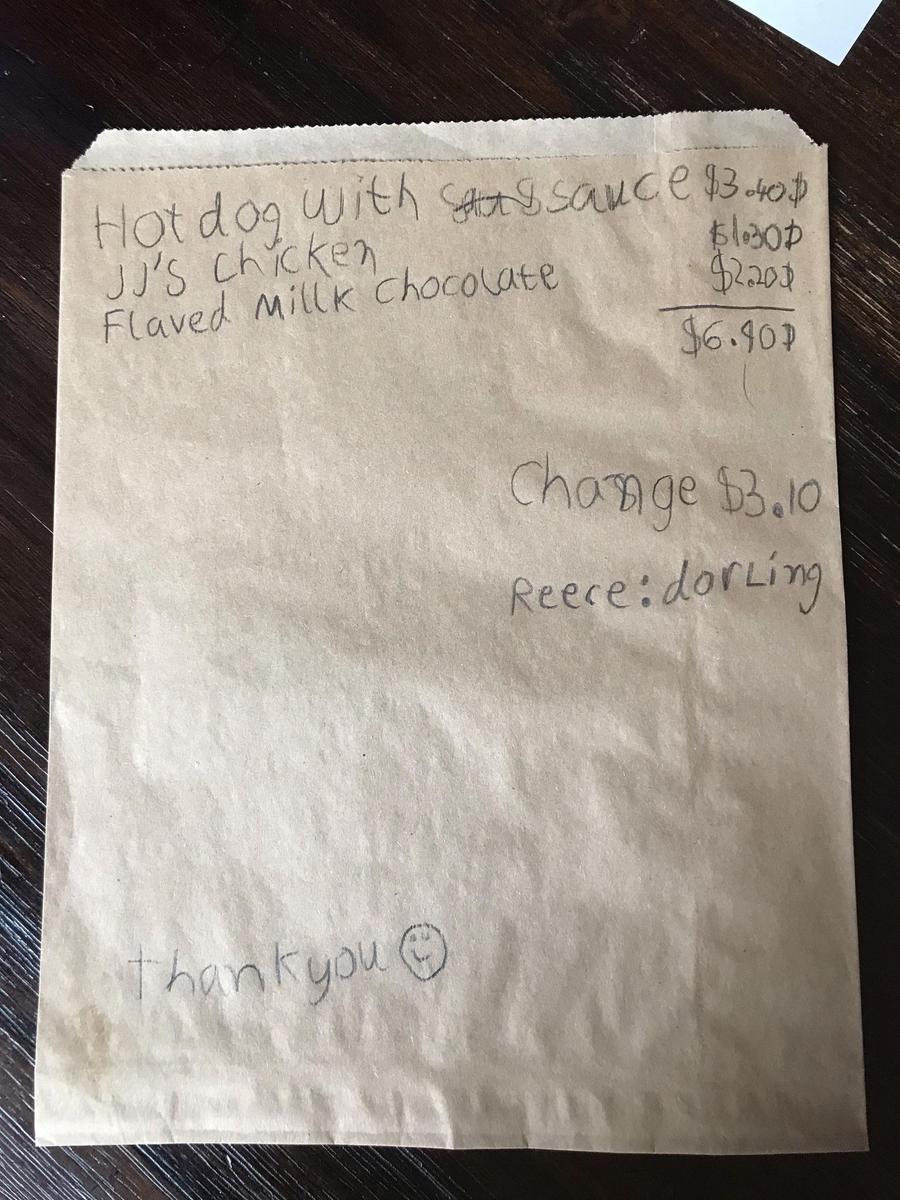 Hot dog with sauce $3.40$
JJ's chicken $1.30$
Flaved Millk Chocolate $2.20$
$6.90$
Change $3.10
Reece: dorLing
thankyou